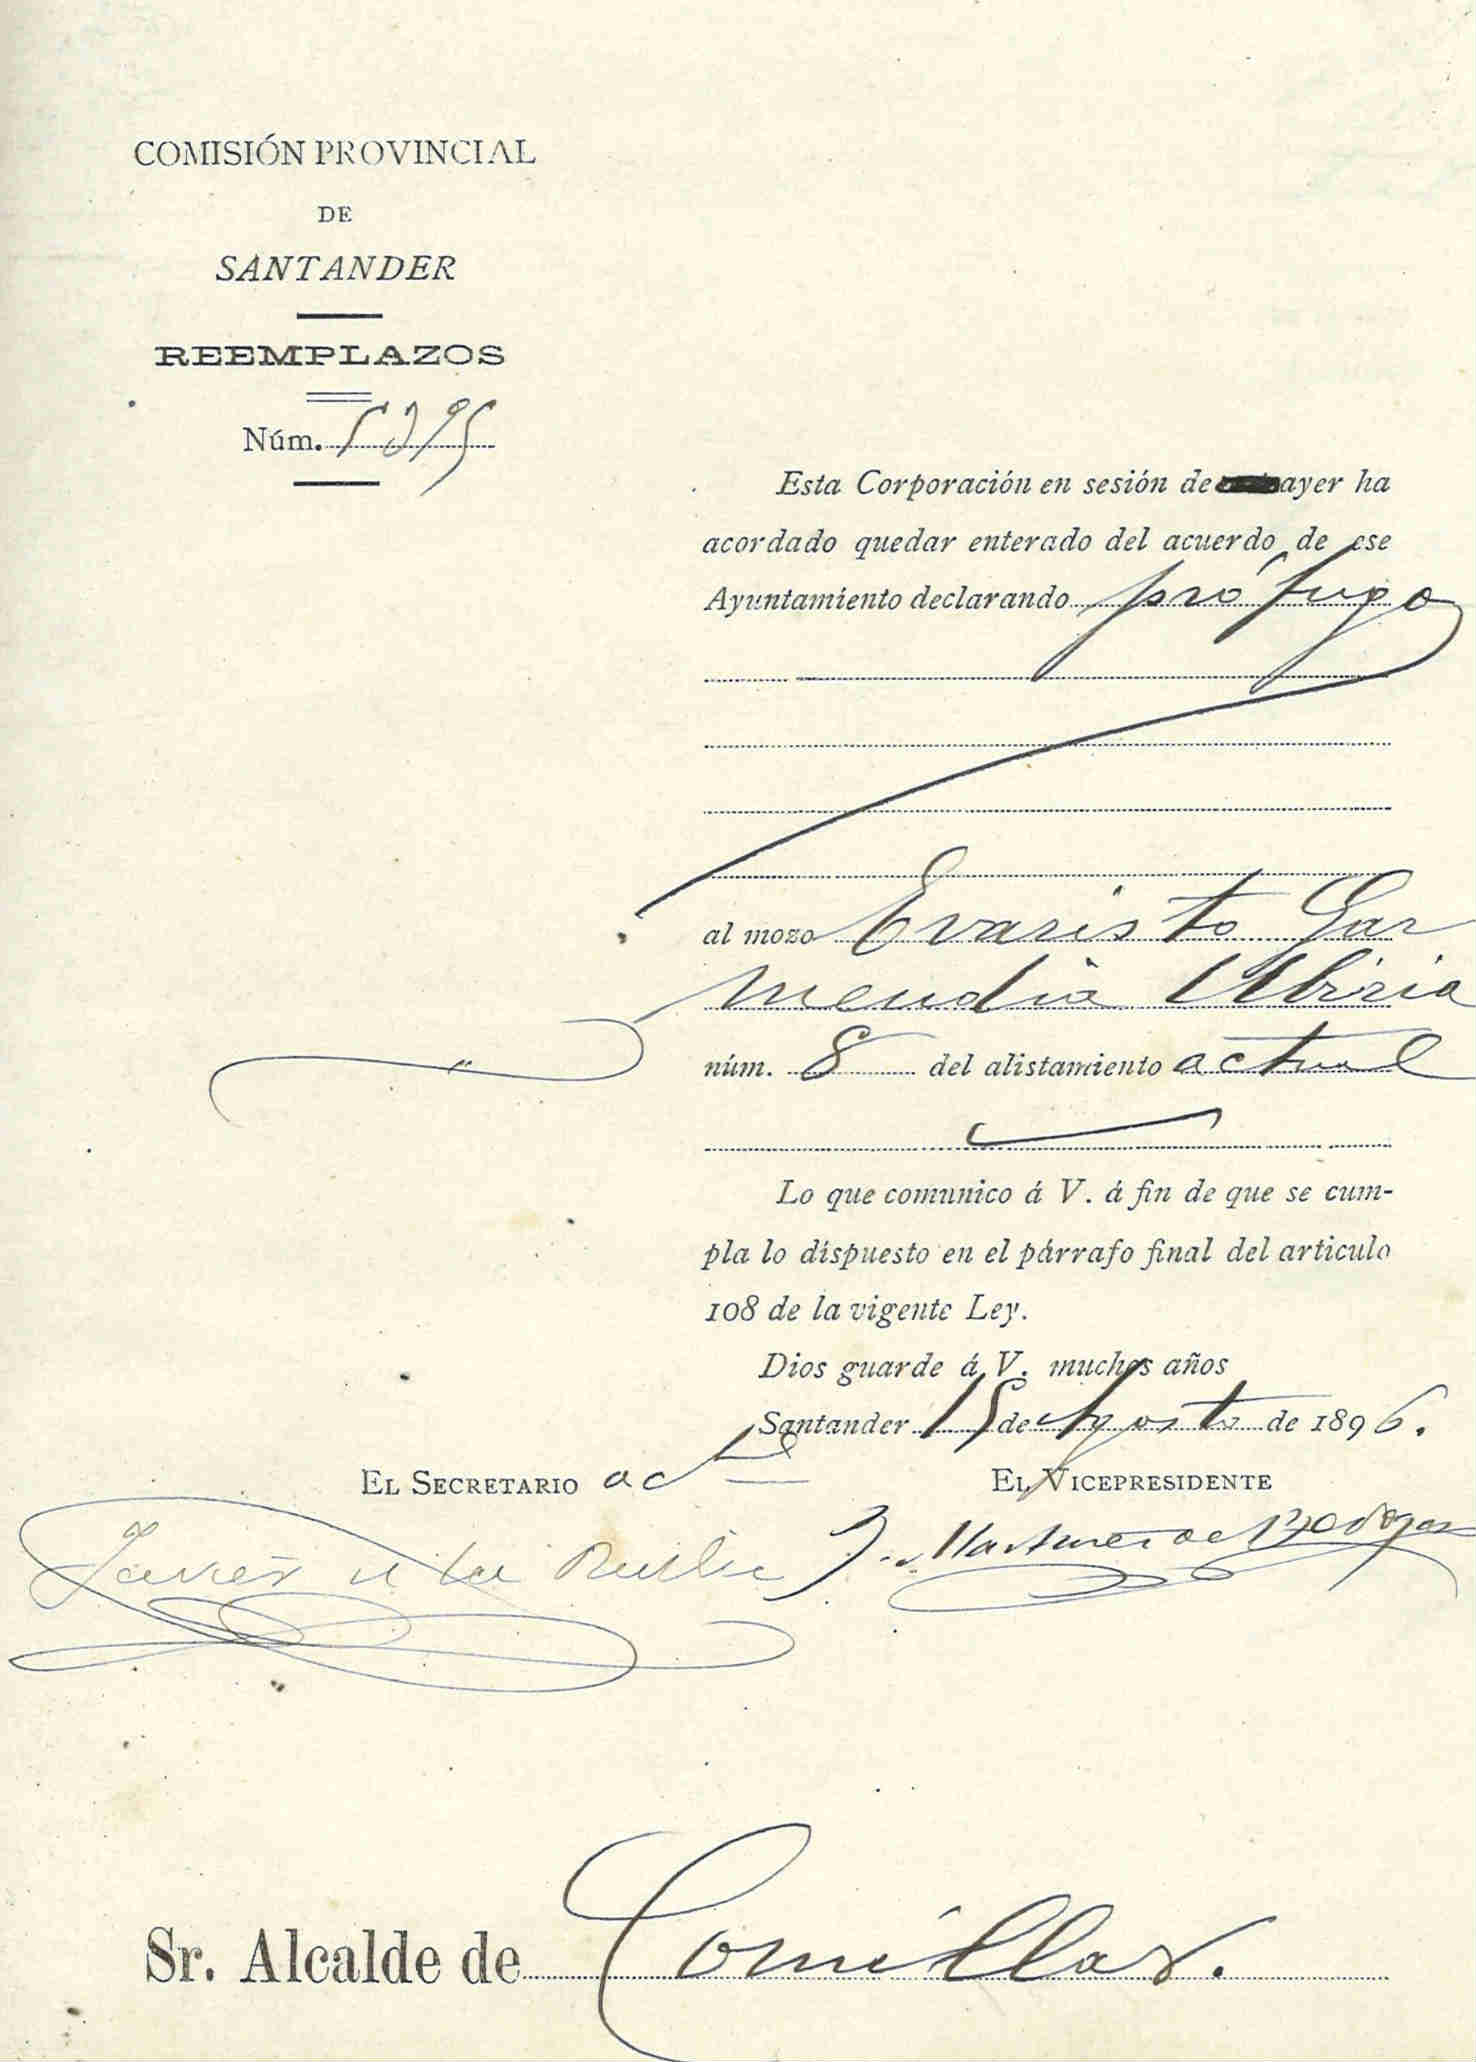 COMISIÓN PROVINCIAL
DE
SANTANDER
REEMPLAZOS
Núm.
Esta Corporación en sesión de ayer ha
acordado quedar enterado del acuerdo de ese
Ayuntamiento declarando prófugo
al mozo Evaristo Gar
mendia Ubiria
núm. 8 del alistamiento actual
Lo que comunico á V. á fin de que se cum-
pla lo dispuesto en el párrafo final del articulo
108 de la vigente Ley.
Dios guarde á V. muchos años
Santander 15 de Agosto de 1896.
EL SECRETARIO EL VICEPRESIDENTE
Javier de la
Sr. Alcalde de Comillas.